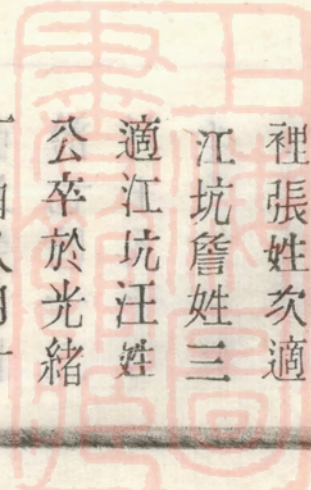 裡張姓次適
江坑詹姓三
適江坑汪姓
公卒於光緒